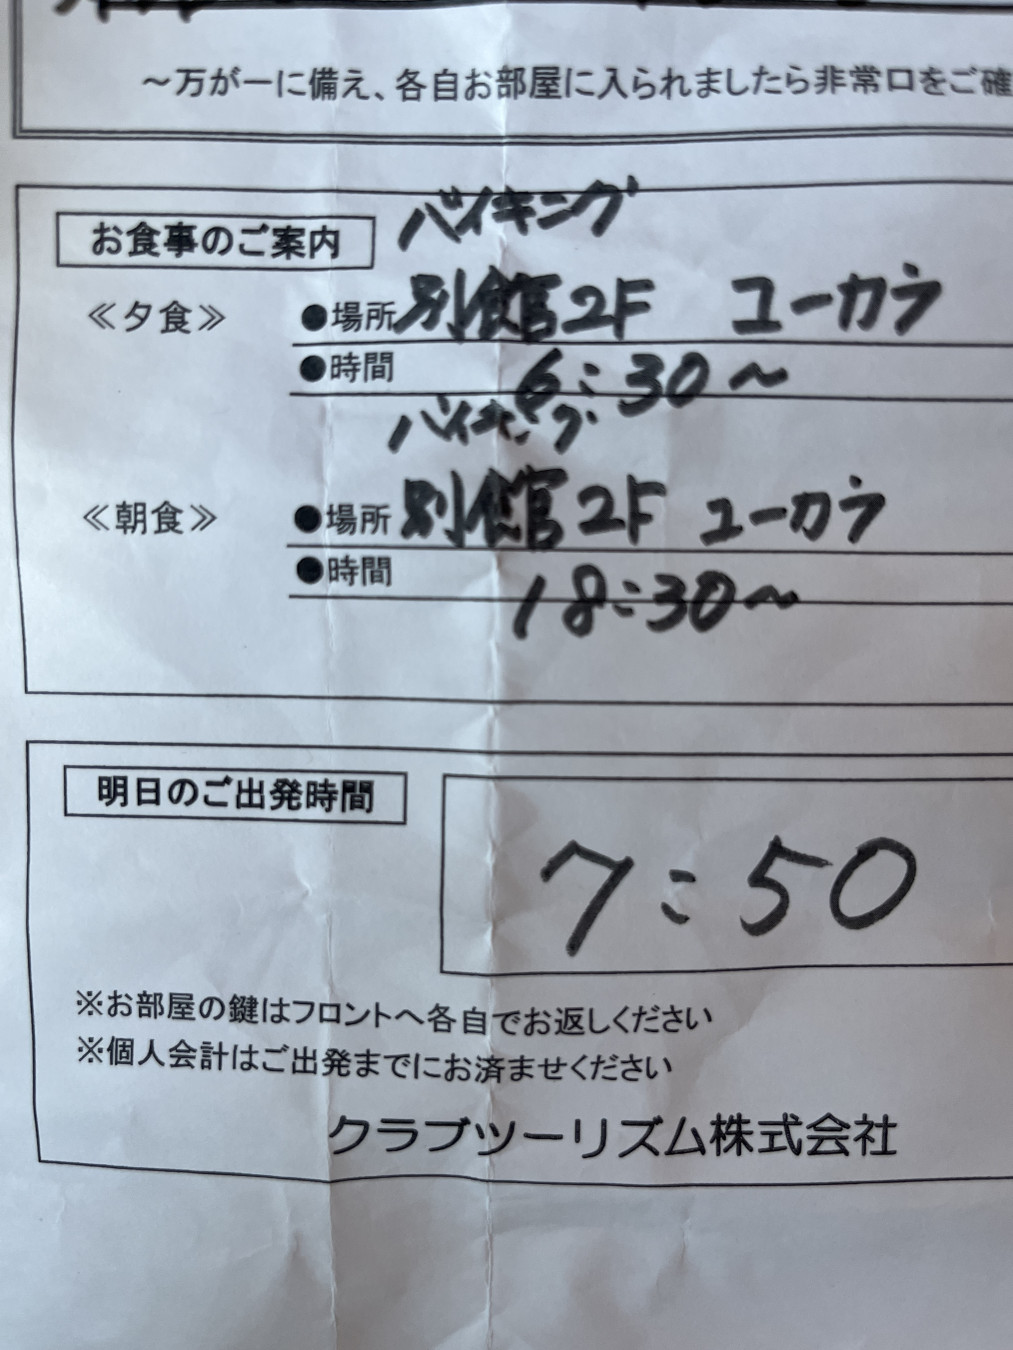 ～万が一に備え、各自お部屋に入られましたら非常口をご確
バイキング
お食事のご案内
≪夕食≫ ●場所 別館2F ユーカラ
●時間 6:30～
バイキング
≪朝食≫ ●場所 別館2F ユーカラ
●時間 18:30～
明日のご出発時間
7:50
※お部屋の鍵はフロントへ各自でお返しください
※個人会計はご出発までにお済ませください
クラブツーリズム株式会社